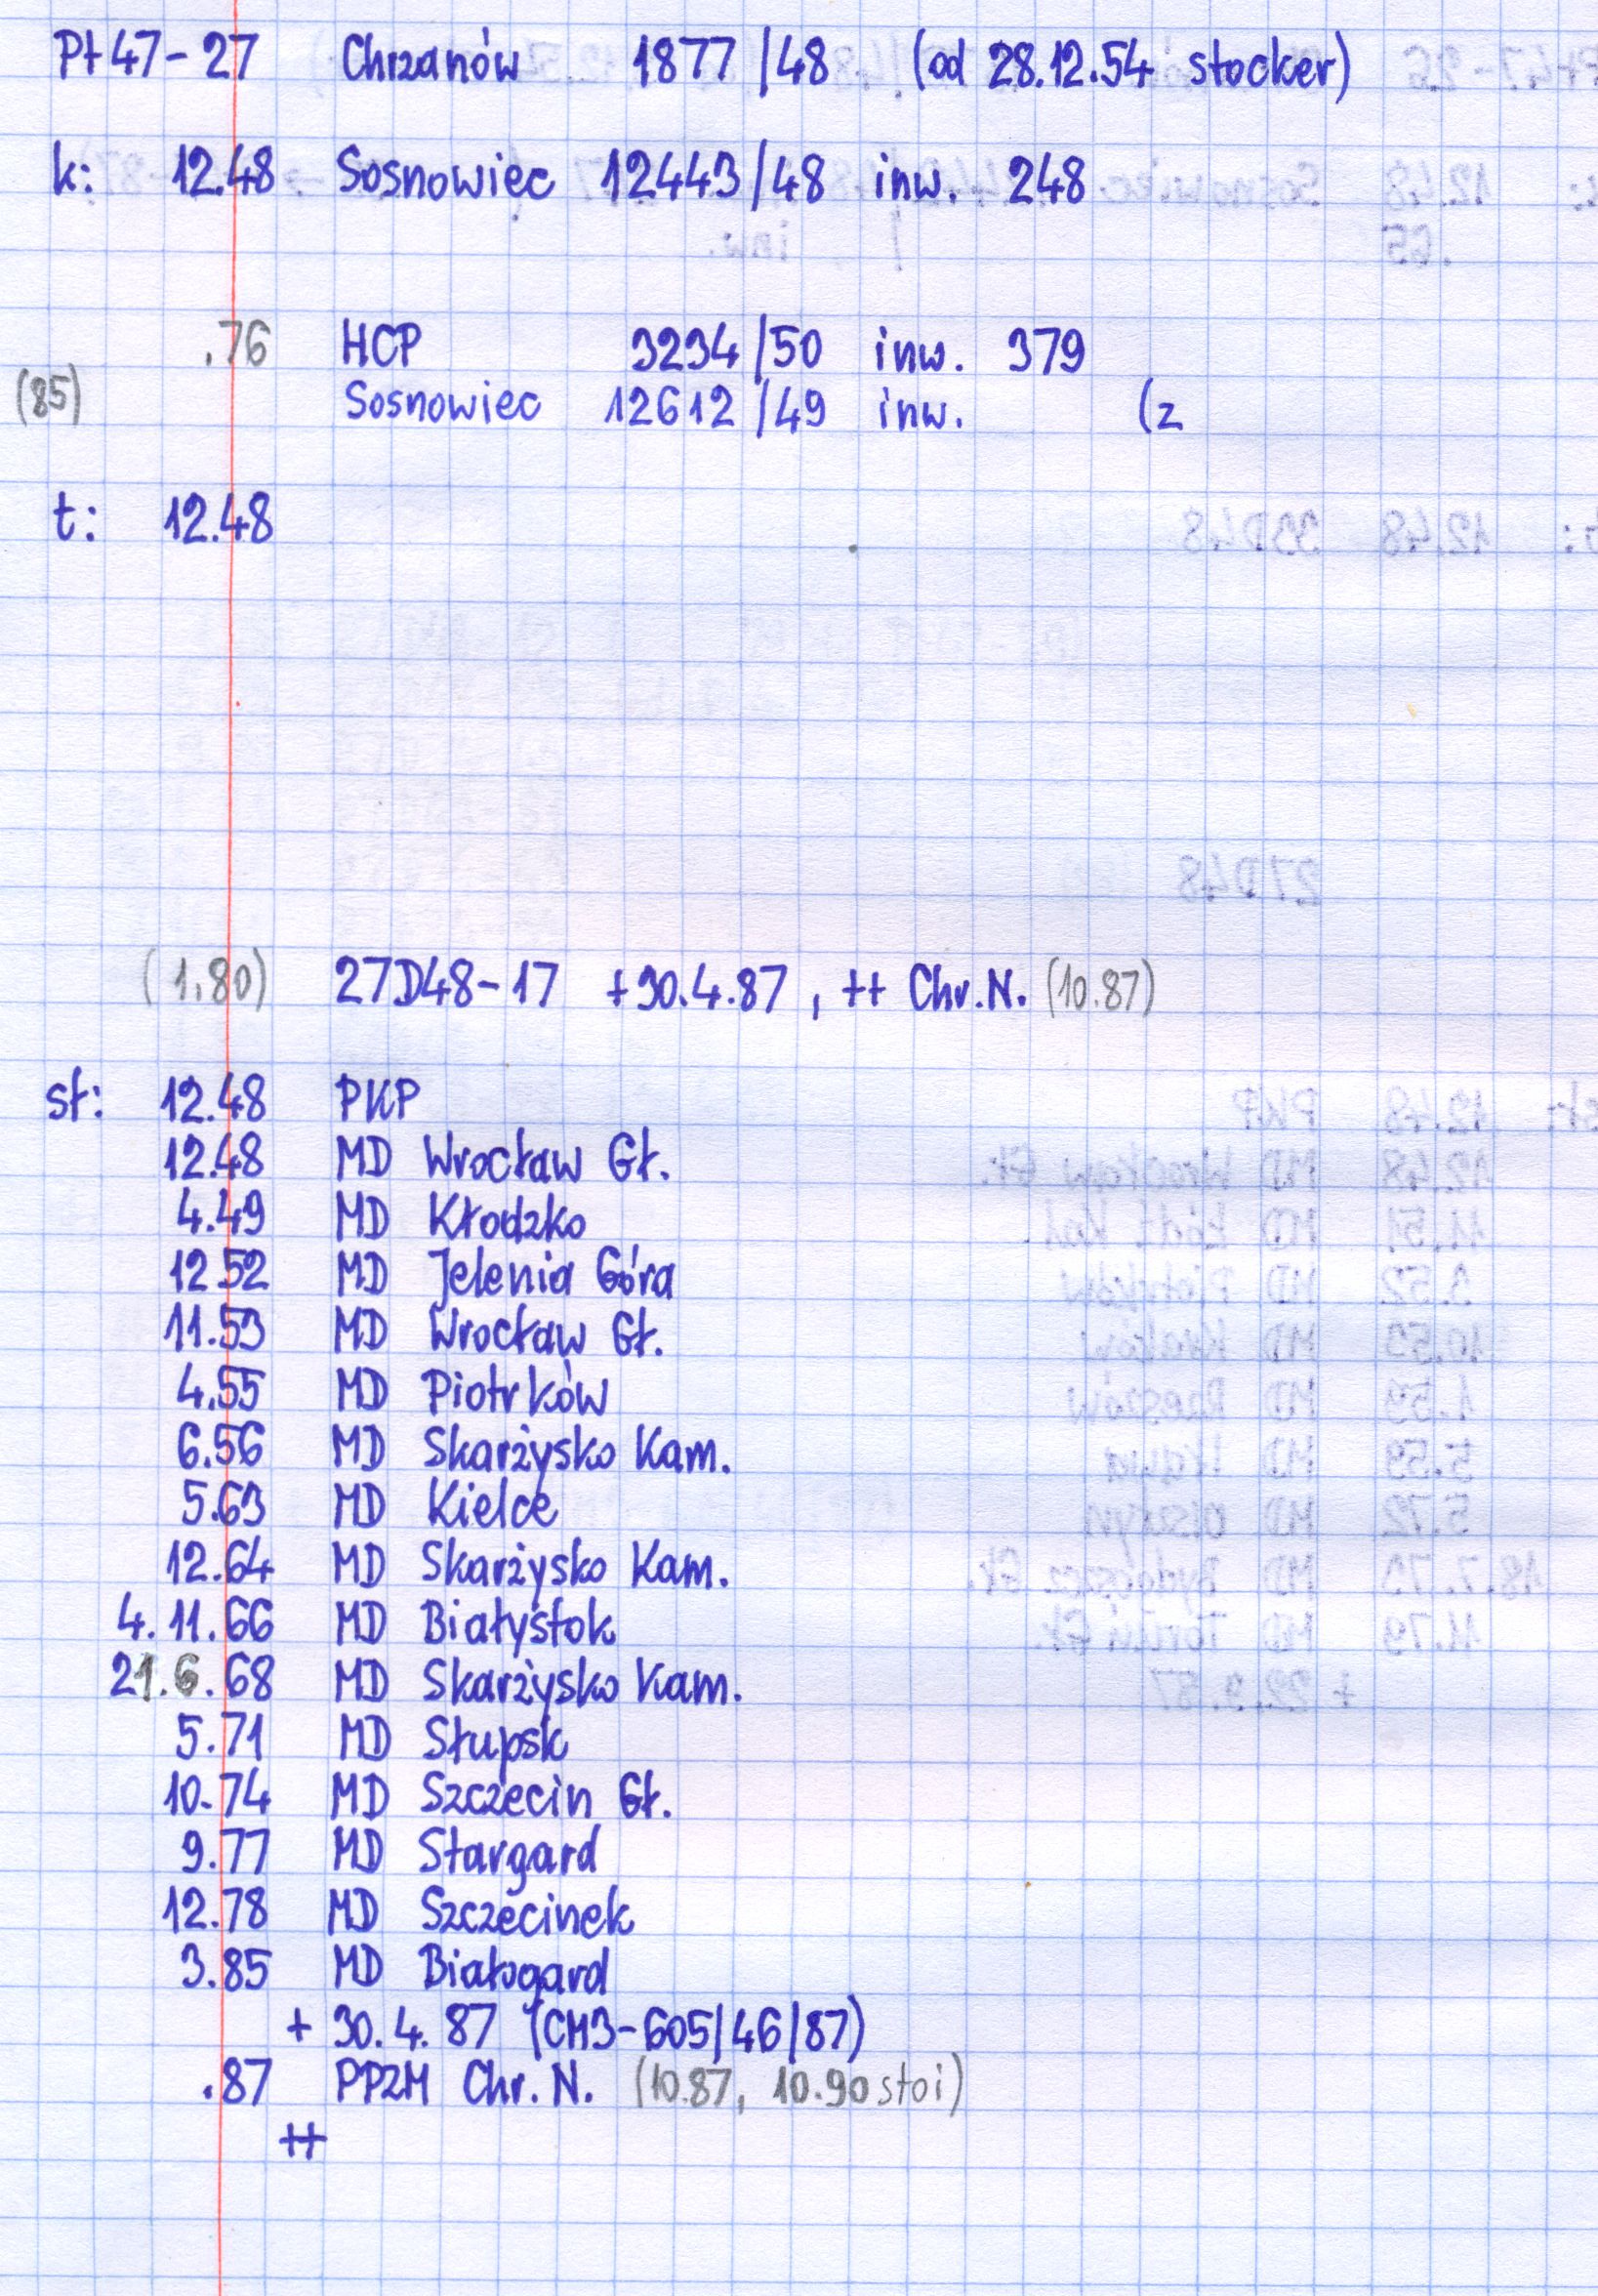 Pt47-27 Chrzanów 1877/48 (od 28.12.54 stocker)
k: 12.48 Sosnowiec 12443/48 inw. 248
.76 HCP 3234/50 inw. 379
(85) Sosnowiec 12612/49 inw. (z
t: 12.48
(1.80) 27D48-17 +30.4.87, ++ Chr.N. (10.87)
st: 12.48 PKP
12.48 MD Wrocław Gł.
4.49 MD Kłodzko
12.52 MD Jelenia Góra
11.53 MD Wrocław Gł.
4.55 MD Piotrków
6.56 MD Skarżysko Kam.
5.63 MD Kielce
12.64 MD Skarżysko Kam.
4.11.66 MD Białystok
21.6.68 MD Skarżysko Kam.
5.71 MD Słupsk
10.74 MD Szczecin Gł.
9.77 MD Stargard
12.78 MD Szczecinek
3.85 MD Białogard
+ 30.4.87 (CM3-605/46/87)
.87 PPZM Chr. N. (10.87, 10.90 stoi)
++